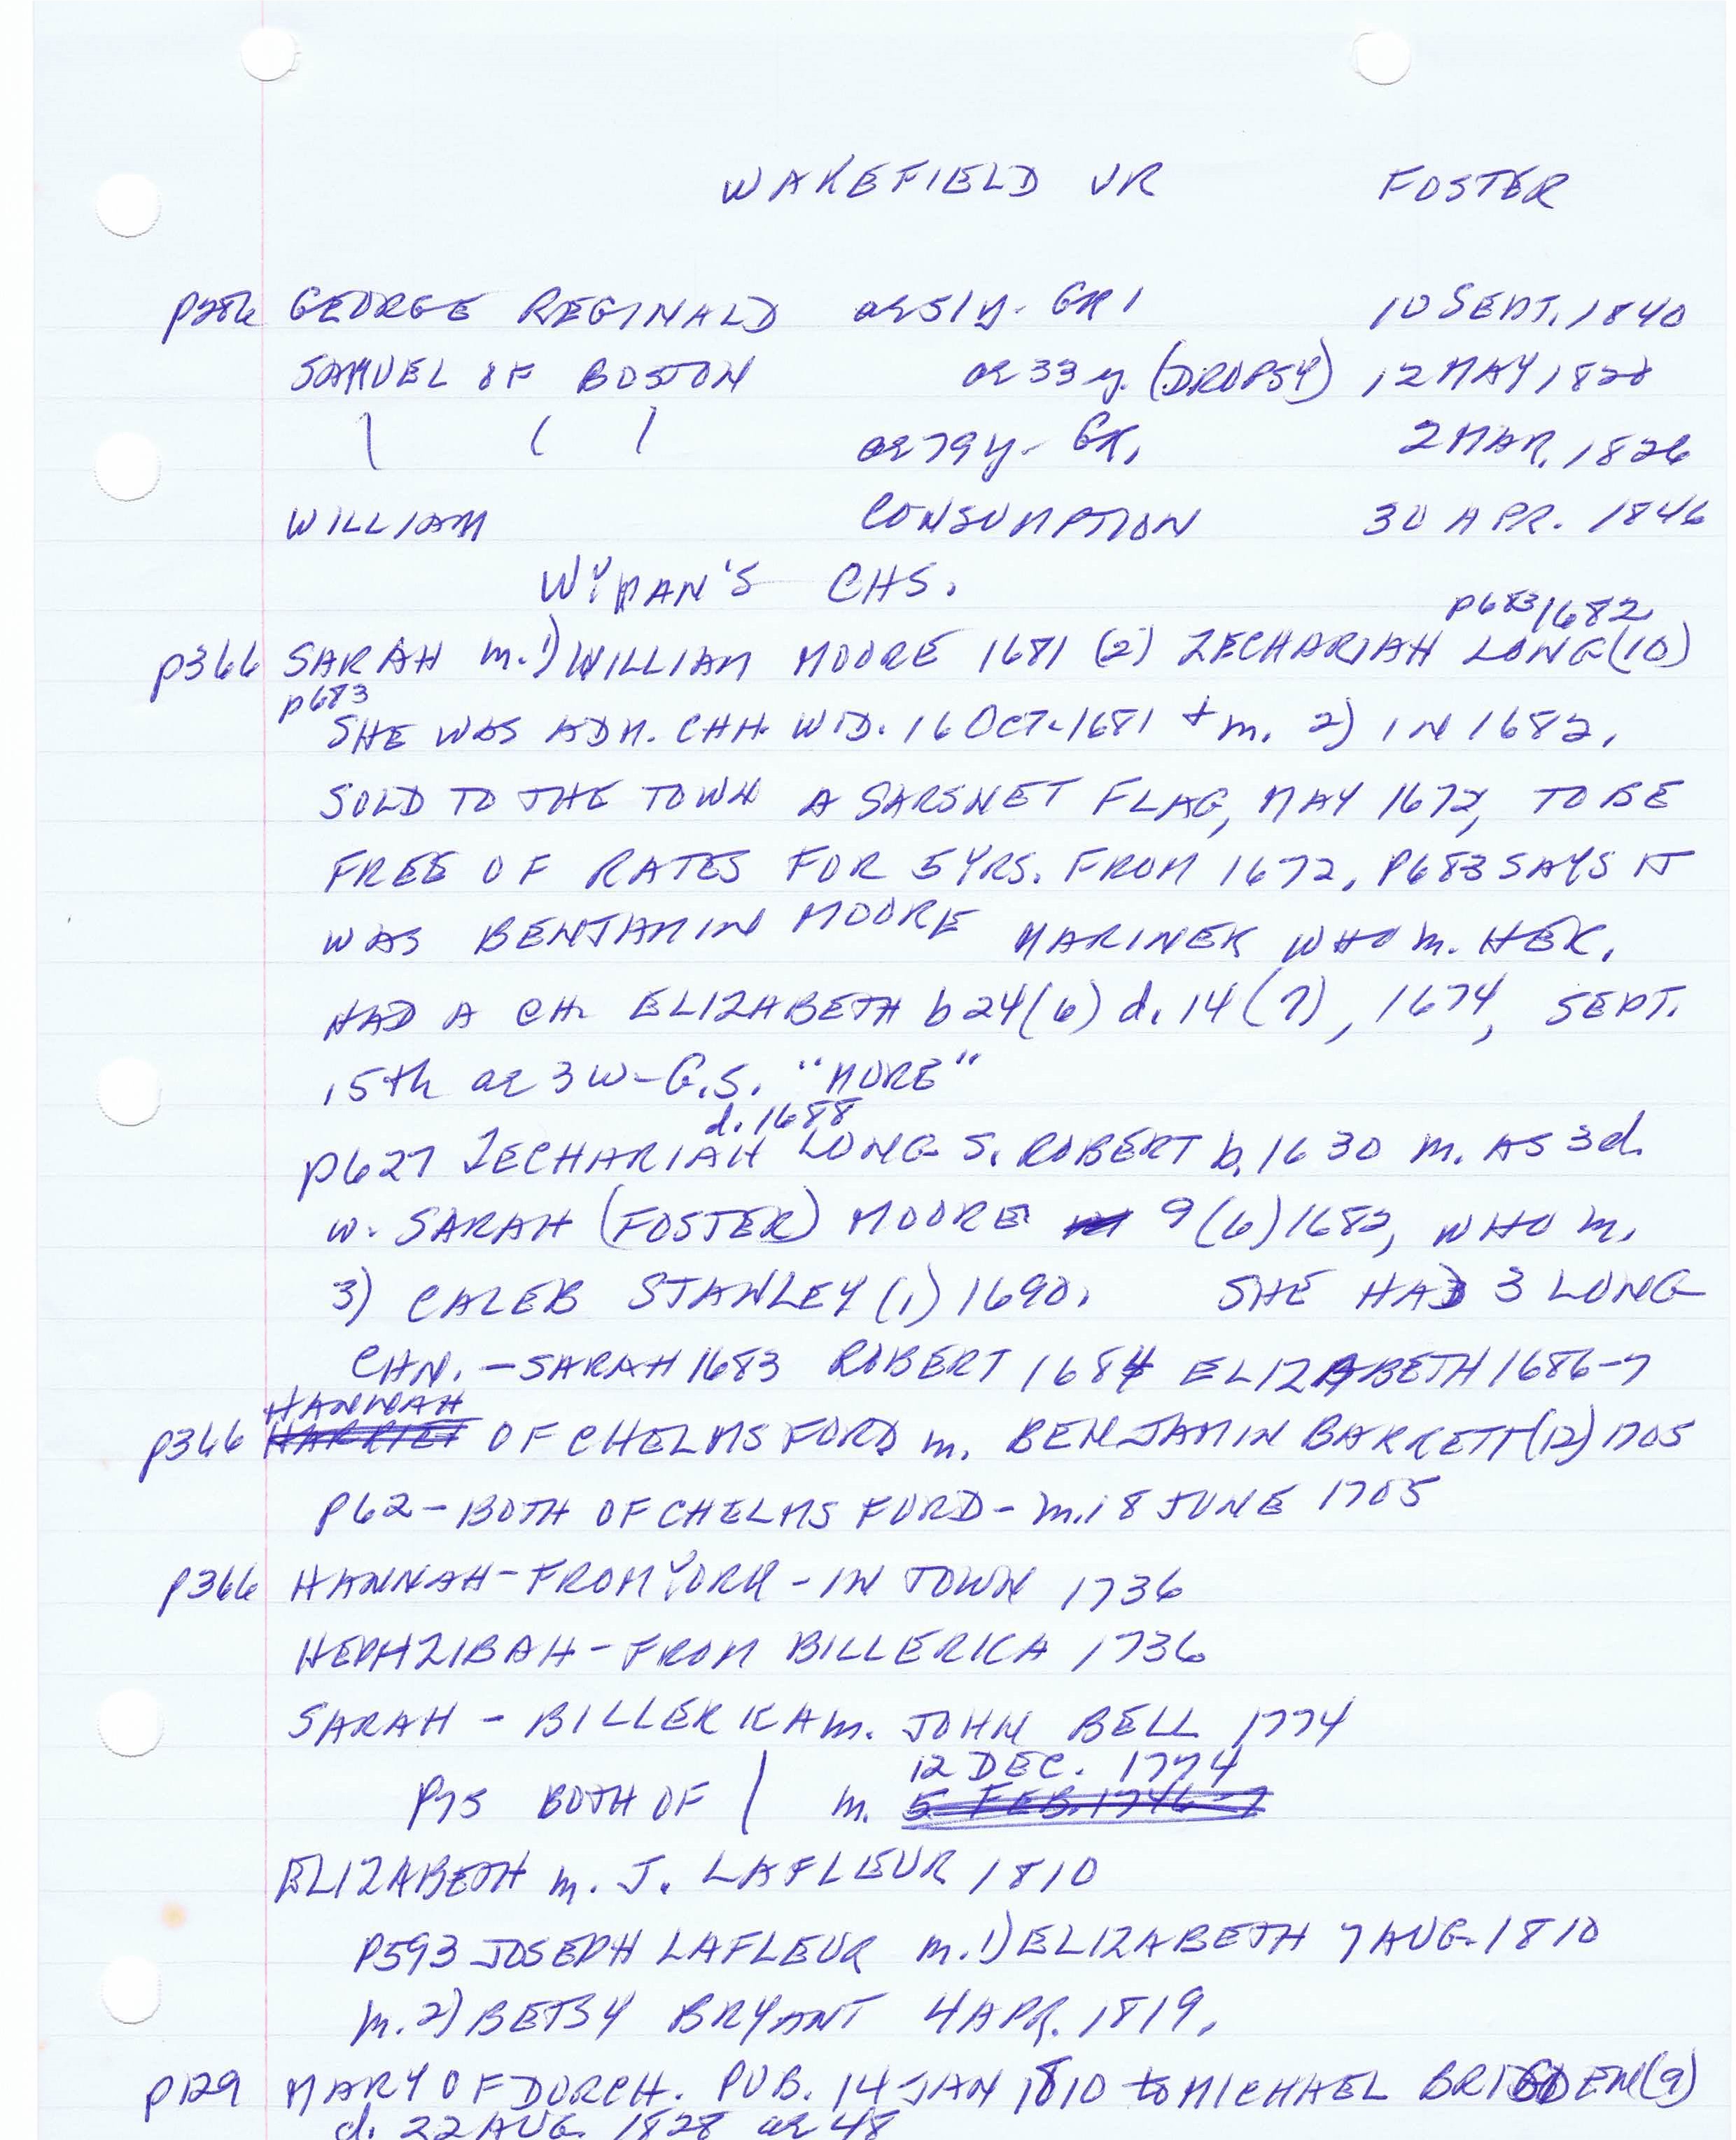 WAKEFIELD VR FOSTER
p286 GEORGE REGINALD ae 51y. GR1 10 SEPT. 1840
SAMUEL OF BOSTON ae 33 y. (DROPSY) 12 MAY 1828
ae 79y- GR, 2 MAR. 1826
WILLIAM CONSUMPTION 30 APR. 1846
WYMAN'S CHS.
p683/682
p366 SARAH m. 1) WILLIAM MOORE 1681 (2) ZECHARIAH LONG (10)
p683
SHE WAS ADM. CHH. WID. 16 OCT. 1681 + m. 2) IN 1682,
SOLD TO THE TOWN A SARSNET FLAG, MAY 1672, TO BE
FREE OF RATES FOR 5 YRS. FROM 1672, P683 SAYS IT
WAS BENJAMIN MOORE MARINER WHO m. HER,
HAD A CH. ELIZABETH b 24(6) d. 14(7), 1674, SEPT.
15th ae 3 w - G.S. "MORE"
d. 1688
p627 ZECHARIAH LONG S. ROBERT b. 1630 m. AS 3d.
w. SARAH (FOSTER) MOORE 9(6)1682, WHO m.
3) CALEB STANLEY (1) 1690. SHE HAD 3 LONG
CHN. - SARAH 1683 ROBERT 1684 ELIZABETH 1686-7
HANNAH
p366 HARRIET OF CHELMSFORD m. BENJAMIN BARRETT (12) 1705
P62 - BOTH OF CHELMSFORD - m. 18 JUNE 1705
p366 HANNAH - FROM YORK - IN TOWN 1736
HEPHZIBAH - FROM BILLERICA 1736
SARAH - BILLERICA m. JOHN BELL 1774
12 DEC. 1774
P75 BOTH OF m. 5 FEB. 1746-7
ELIZABETH m. J. LAFLEUR 1810
P593 JOSEPH LAFLEUR m. 1) ELIZABETH 7 AUG. 1810
m. 2) BETSY BRYANT 4 APR. 1819,
p129 MARY OF DORCH. PUB. 14 JAN 1810 to MICHAEL BRIGDEN (9)
d. 22 AUG. 1828 ae 48